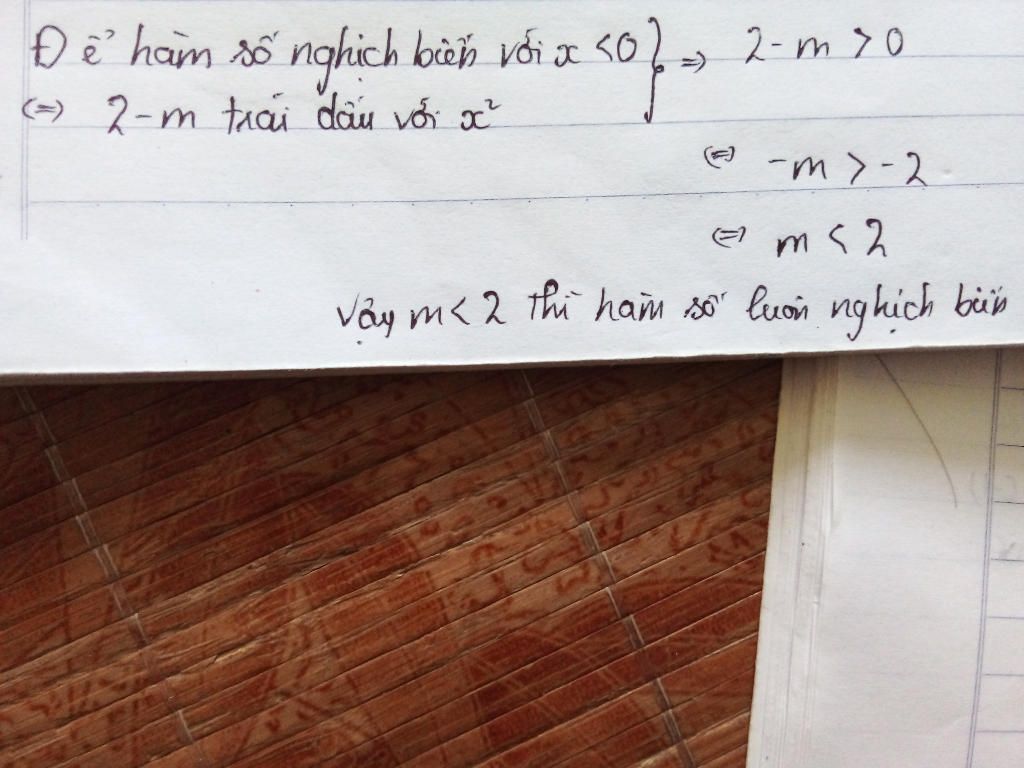 Để hàm số nghịch biến với x < 0 } => 2 - m > 0
(=) 2 - m trái dấu với x²
(=) -m > -2
(=) m < 2
Vậy m < 2 thì hàm số luôn nghịch biến